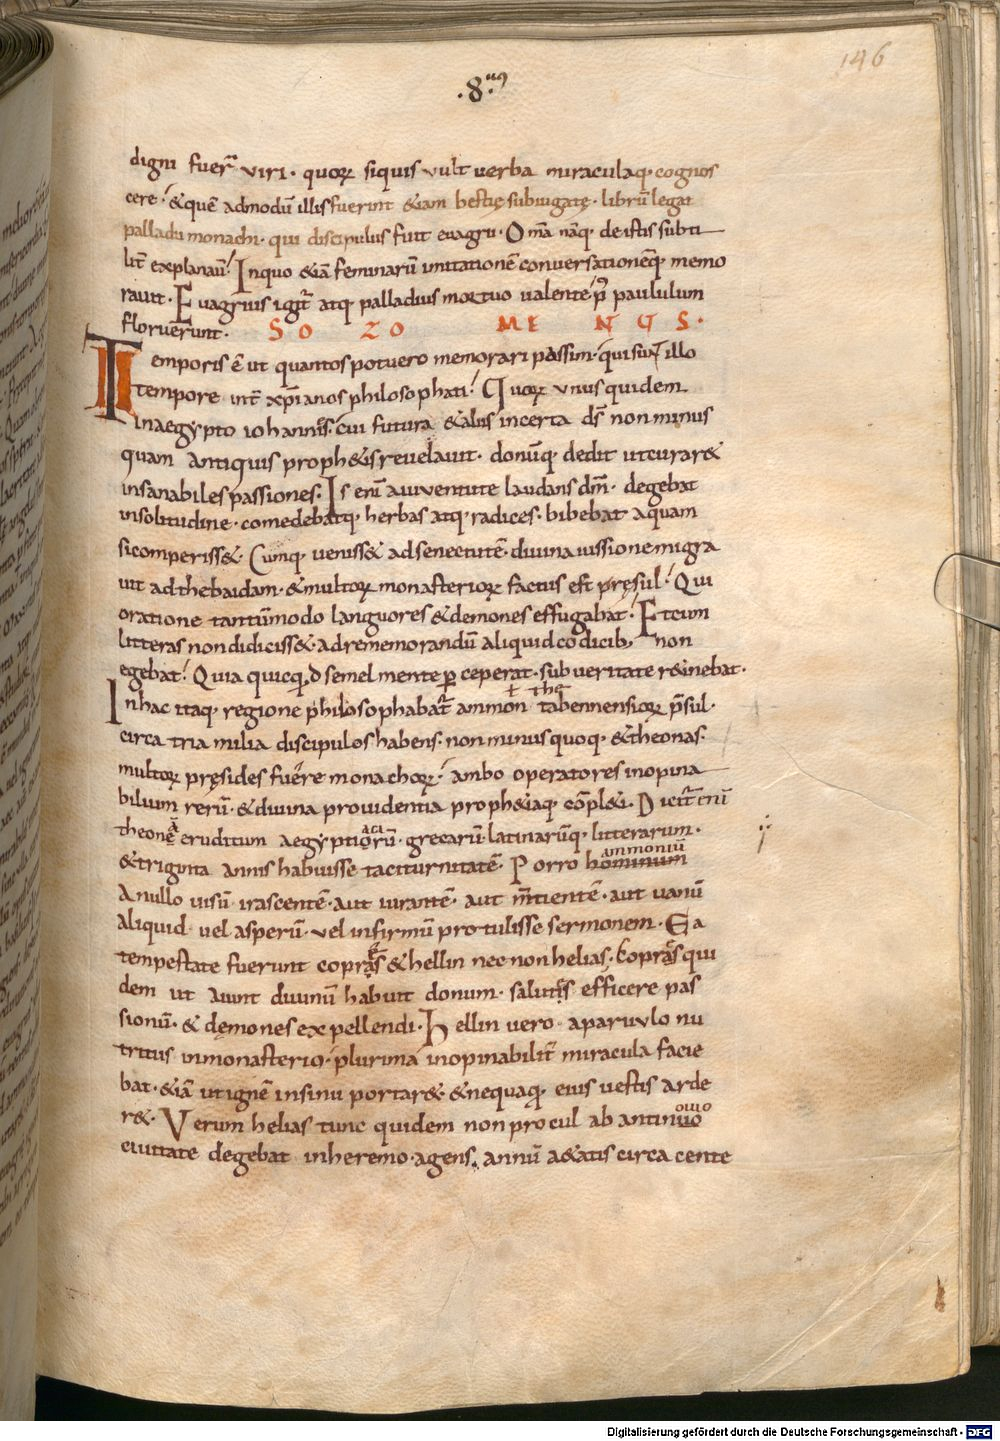 146
·8·us
digni fuer̄ viri· quoꝝ siquis vult uerba miraculaq· cognos
cere· &quē admodū illis fuerint &iam bestię subiugatę· librū legat
palladii monachi· qui discipulus fuit euagrii· Om̄a nāq· de istis subti
lit̄ explanauit̄· Inquo &iā feminarū imitationē conuersationēq· memo
rauit· Euagrius igit̄ atq· palladius mortuo ualente p̄ paululum
floruerunt· SOZOMENUS·
Temporis ē ut quantos potuero memorari passim· qui sunt illo
tempore int̄ xp̄ianos philosophati· Quoꝝ vnus quidem
inaegypto iohannis· cui futura &aliis incerta ds̄ non minus
quam antiquis proph&is reuelauit· donūq· dedit utcurar&
insanabiles passiones· Is enī a iuuentute laudans dm̄· degebat
insolitudine· comedebatq· herbas atq· radices· bibebat aquam
sicomperiss&· Cumq· ueniss& adsenectutē· diuina iussione migra
uit ad thebaidam· &multoꝝ monasterioꝝ factus est pręsul· Qui
oratione tantūmodo languores &demones effugabat· Etcum
litteras non didiciss&· adrememorandū aliquid codicib; non
egebat· Quia quicqd semel mente ꝑceperat· sub ueritate r&inebat·
Inhac itaq· regione philosophabat̄ ammon + tabennensioꝝ p̄sul·
the
circa tria milia discipulos habens· non minus quoq· &theonas·
multoꝝ pręsides fuere monachoꝝ· ambo operatores inopina
bilium rerū· &diuina prouidentia proph&iaq· cōpl&i· Dicit̄ enī
theonē eruditum aegyptiorū· grecarū· latinarūq· litterarum·
&triginta annis habuisse taciturnitatē· Porro hominum
ammoniū
a nullo uisū irascentē· aut iurantē· aut m̄tientē· aut uanū
aliquid uel asperū· vel infirmū protulisse sermonem· Ea
tempestate fuerunt copras &hellin nec non helias· Kopras qui
dem ut aiunt diuinū habuit donum· salutis efficere pas
sionū· & dęmones expellendi· Hellin uero aparuulo nu
tritus inmonasterio· plurima inopinabilit̄ miracula facie
bat· &iā ut ignē insinu portar& &nequaq· eius uestis arde
r&· Verum helias tunc quidem non procul ab antinuo
ciuitate degebat inheremo· agens annū a&atis circa cente
Digitalisierung gefördert durch die Deutsche Forschungsgemeinschaft - DFG